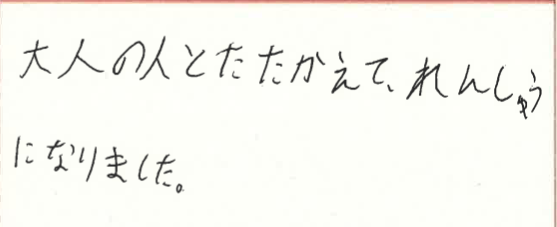 大人の人とたたかえて、れんしゅう
になりました。